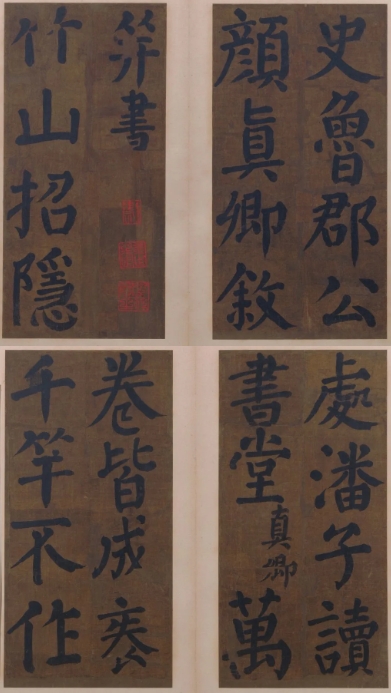 史魯郡公
顏眞卿敘
笄書
竹山招隱
處潘子讀
書堂真卿萬
卷皆成袠
千竿不作